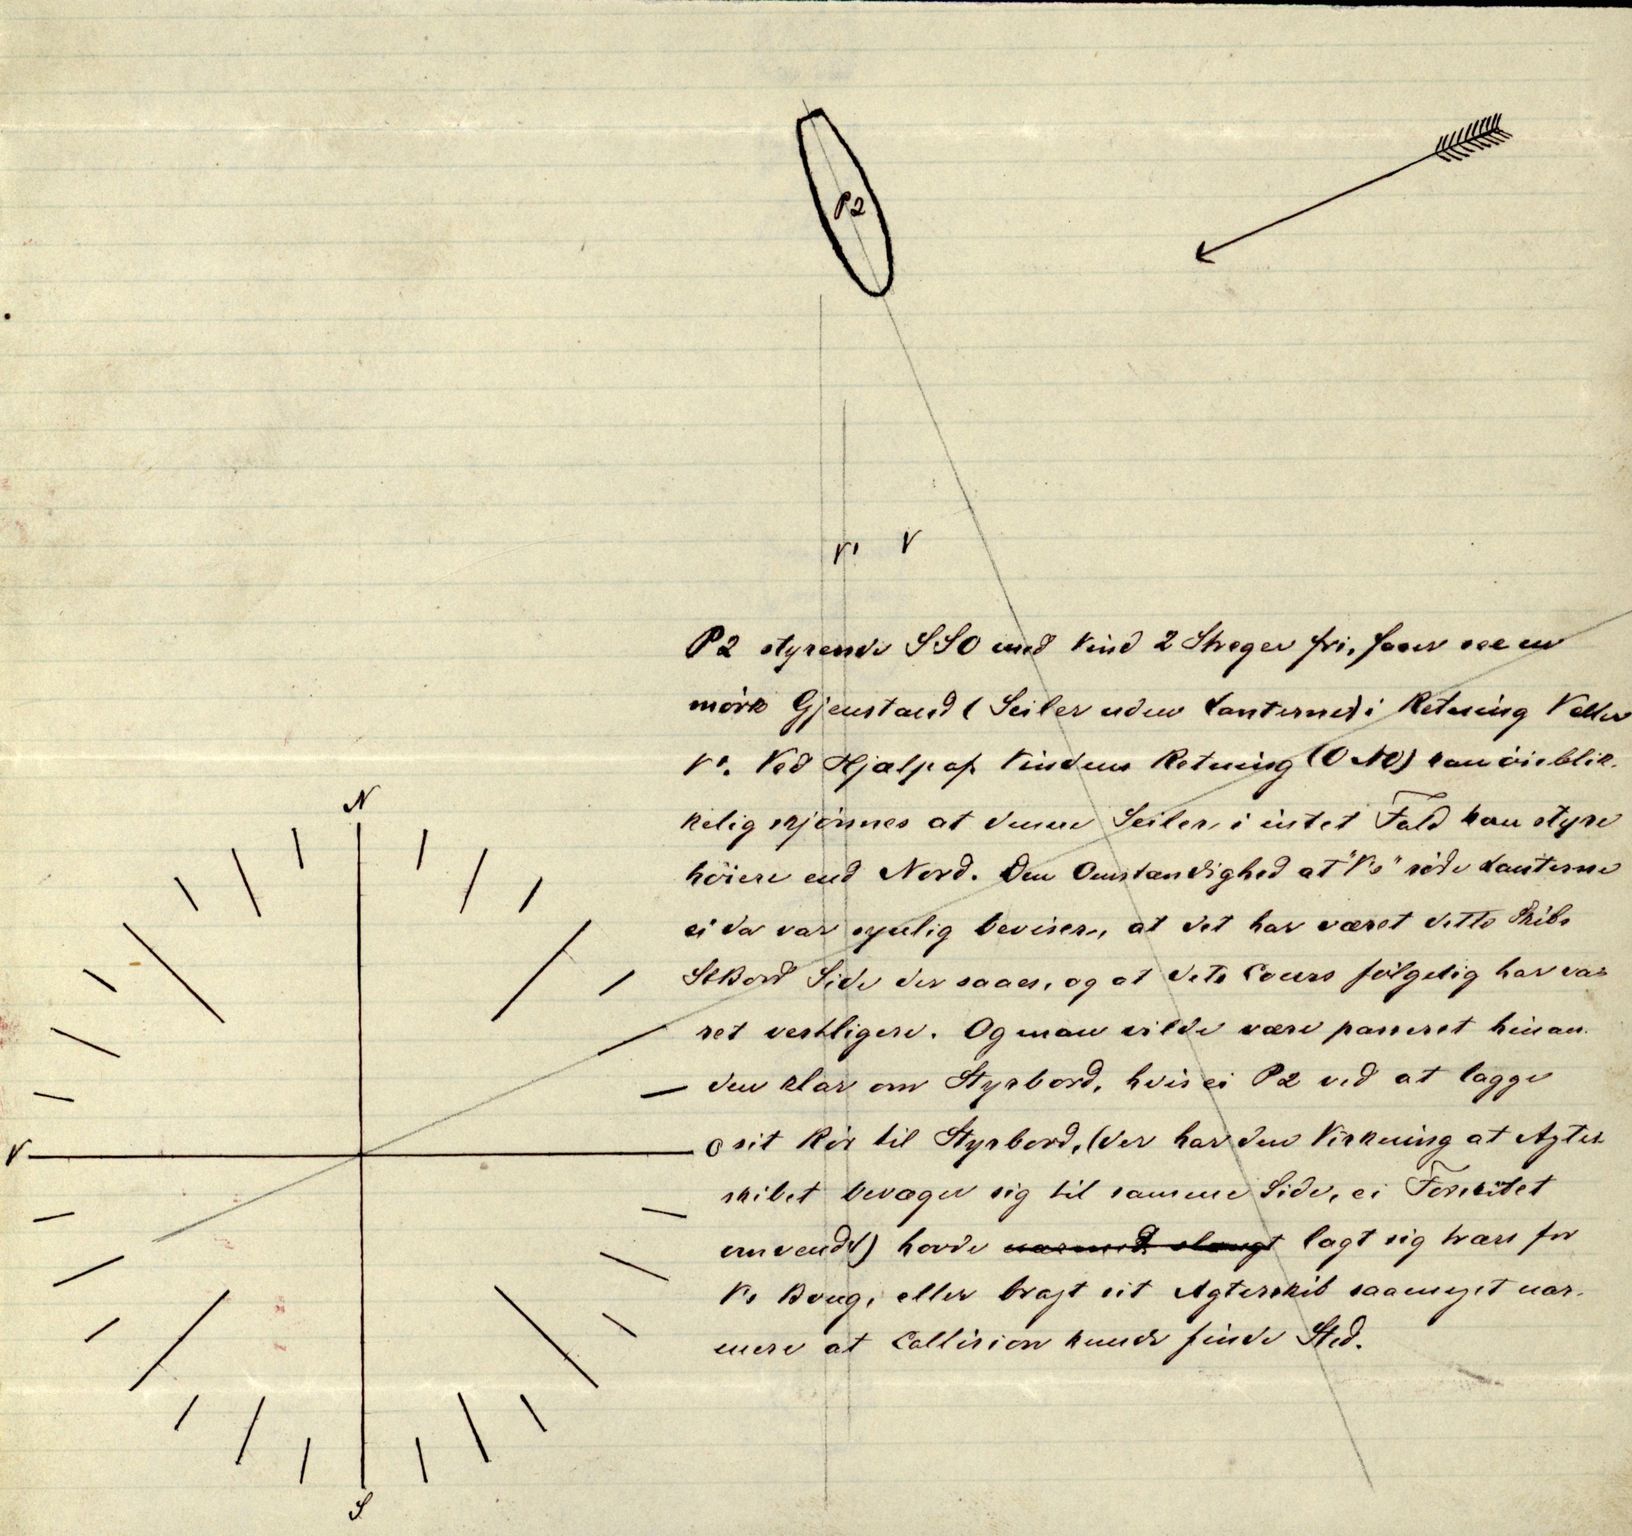 P2
V' V
P2 styrende SSO med Vind 2 Streger fri, faaer see en
mörk Gjenstand (Seiler uden Lanterne) i Retning V eller
V'. Ved Hjælp af Vindens Retning (ONO) kan öieblik-
kelig skjönnes at denne Seiler, i intet Fald kan styre
höiere end Nord. Den Omstændighed at "V's" röde Lanterne
ei da var synlig beviser, at det har været dette Skibs
StBord Side der saaes, og at dets Cours fölgelig har væ-
ret vestligere. Og man vilde være passeret hinan-
den klar om Styrbord, hvis ei P2 ved at lægge
sit Rör til Styrbord, (der har den Virkning at Agter-
skibet bevæger sig til samme Side, ei Forskibet
omvendt) havde lagt sig tværs for
V's Boug, eller bragt sit Agterskib saameget nær-
mere at Collision kunde finde Sted.
N
V O
S